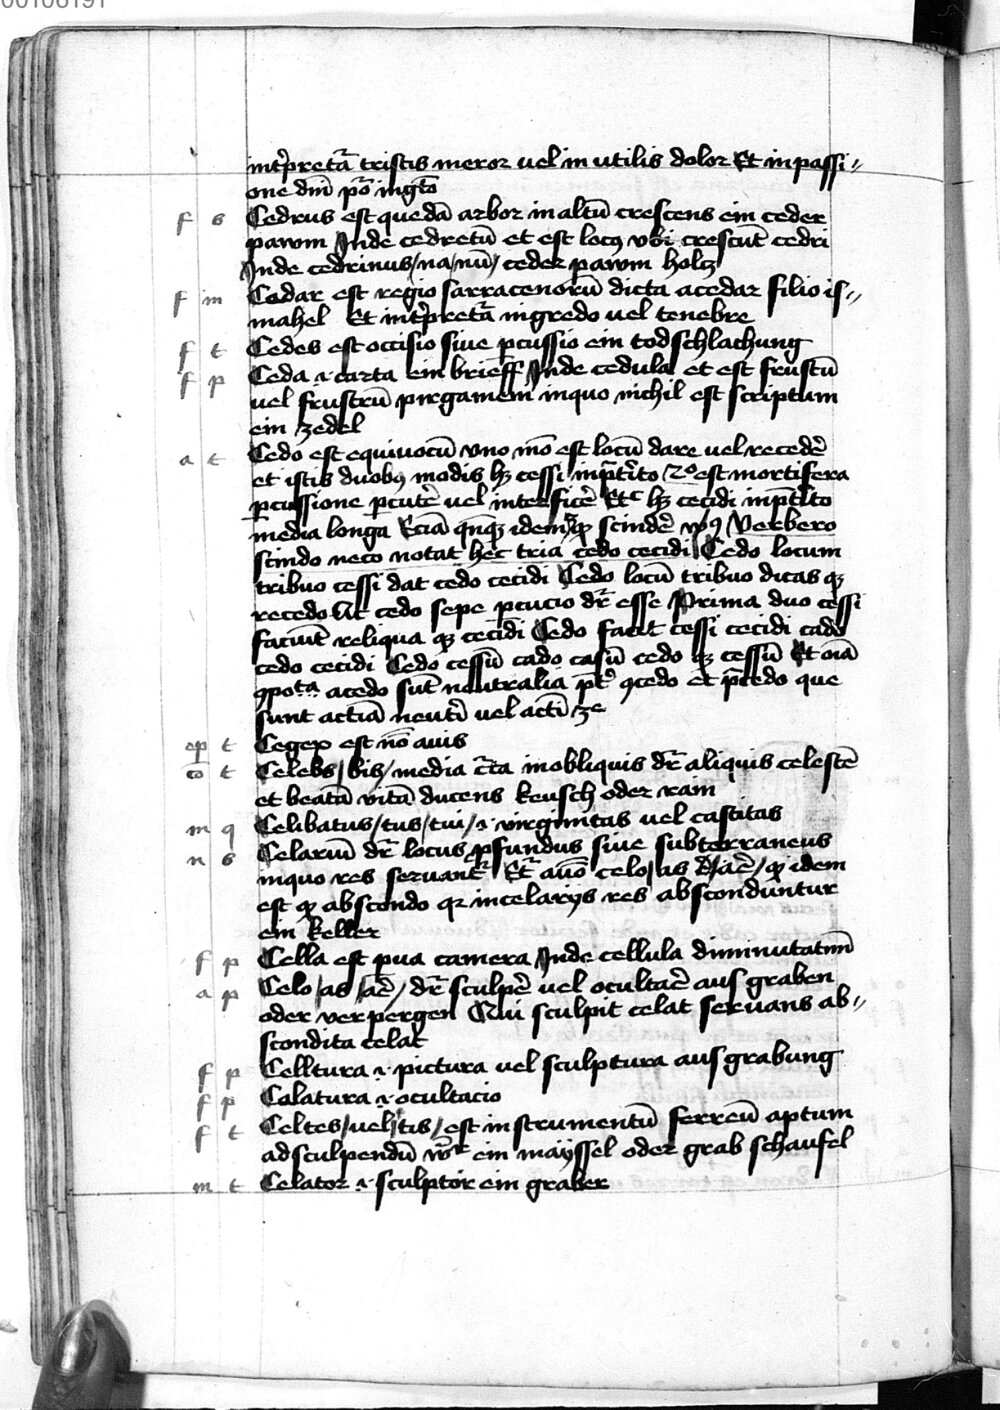 00106191
intp̄retā tristis meror vel in utilis dolor Et in passi〃
one dnī
f s Cedrus est quedā arbor in altū crescens ein ceder
pawm Inde cedretū et est locꝯ vbi crescūt cedri
Inde cedrinus/na/nū/ ceder pawm holcz
f m Cedar est regio sarracenorū dicta a cedar filio is〃
mahel Et intp̄retā ingredo vel tenebre
f t Cedes est occisio siue ꝑcussio ein todschlachung
f p Ceda .i. carta ein brieff Inde cedula et est frustū
vel frustrū pirgameni in quo nichil est scriptum
ein zedel
a t Cedo est equiuocū vno mō est locū dare vel recedē
et istis duobꝯ modis hꝫ cessi in p̄tito 2º est mortifera
ꝑcussione ꝑcutē vel interficē Etc hꝫ cecidi in p̄tito
media longa idem scindē vꝰ Verbero
scindo neco notat hec tria cedo cecidi Cedo locum
tribuo cessi dat cedo cecidi Cedo locū tribuo dicas qꝫ
recedo Ut cedo sepe ꝑcucio dr̄ esse Prima duo cessi
faciūt reliqua qꝫ cecidi Cedo facit cessi cecidi cado
cedo cecidi Cedo cessū cado casū cedo qꝫ cessū Et oīa
ꝯpoīta a cedo sūt neutralia p̄tꝰ ꝯcedo et p̄cedo que
sunt actiā neutī vel actī
ep t Cegex est nō auis
co t Celebs/bis/media c̄ta in obliquis dr̄ aliquis celestē
et beatā vitā ducens keusch oder rain
m q Celibatus/tus/tui/.i. virginitas vel castitas
n s Celariū dr̄ locus ꝓfundus siue subterraneus
in quo res seruant̄ Et celo/as idem
est qꝫ abscondo qꝛ in celarijs res absconduntur
ein keller
f p Cella est ꝑua camera Inde cellula diminutatiuū
a p Celo/as/aē/ dr̄ sculpē vel ocultaē aus graben
oder verpergen Qui sculpit celat seruans ab〃
scondita celat
f p Celltura .i. pictura vel sculptura aus grabung
f p Calatura .i. ocultacio
f t Celtes/vel/tis/est instrumentū ferreū aptum
ad sculpendū ein mäyssel oder grab schaufel
m t Celator .i. sculptor ein graber